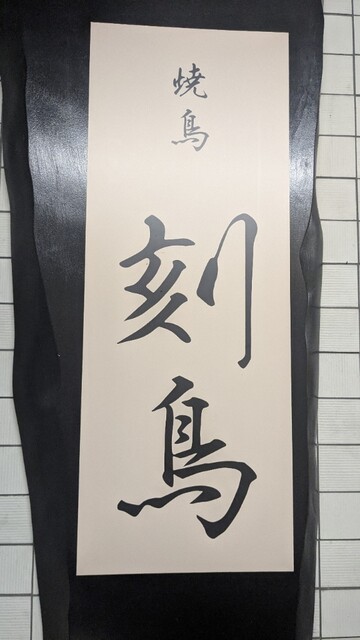 焼鳥
刻鳥